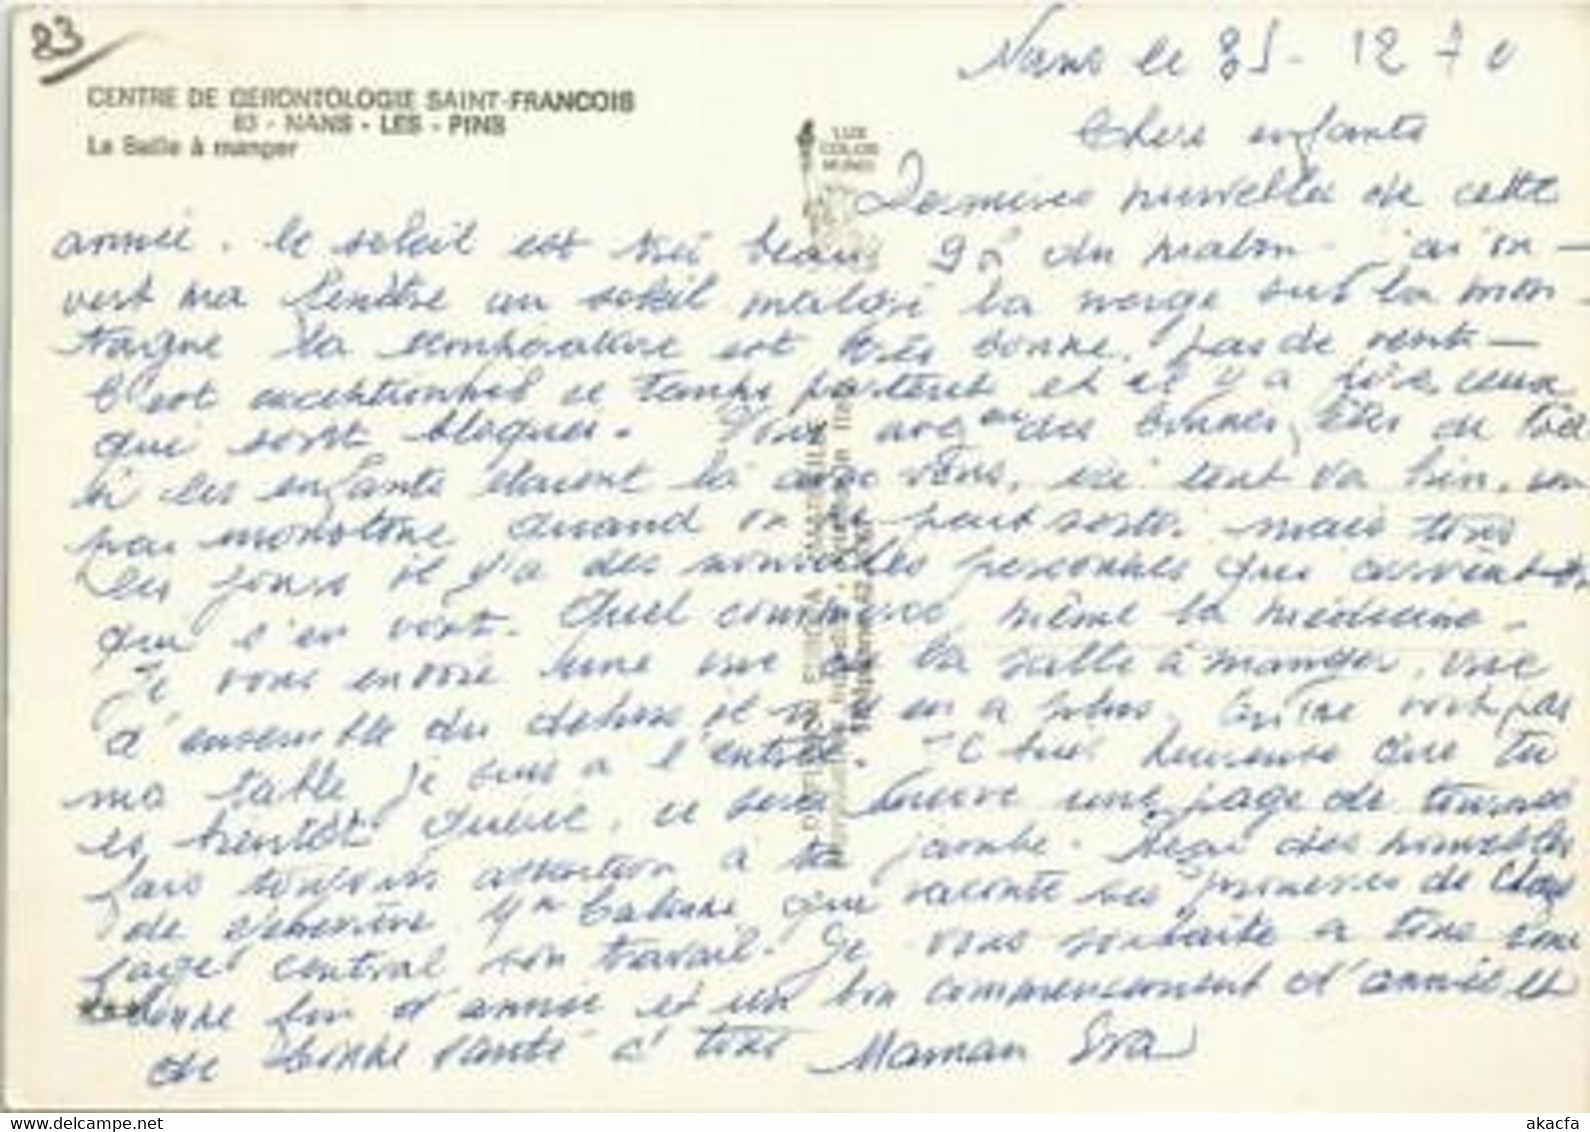 83
CENTRE DE GERONTOLOGIE SAINT-FRANCOIS
83 - NANS - LES - PINS
La Salle à manger
LUX
COLOR
Nans le 12 70
Chers enfants
Dernieres nouvelles de cette
année. le soleil est très beau 9h du matin j'ai ou-
vert ma fenêtre un soleil malgré la neige sur la mon-
tagne la température est très bonne, pas de vent -
C'est exceptionnel ce temps partout et il y a pire ceux
qui sont bloqués. Vous avez eu des bonnes fêtes de Noël
si les enfants étaient là avec vous, ici tout va bien, un
peu monotone quand on ne peut sortir mais tous
les jours il y a des nouvelles personnes qui arrivent ou
qui s'en vont. Quel commerce, même la médecine.
Je vous envoie une vue de la salle à manger, vue
d'ensemble du dehors il n'y en a plus, on ne voit pas
ma table je suis a l'entrée. heureuse que tu
es bientôt guérie, ce sera encore une page de tournée
fais toujours attention à ta jambe. Reçu des nouvelles
de Geneviève que raconte ses
central son travail. Je vous souhaite a tous une
bonne fin d'année et un bon commencement d'année et
de bonne santé a tous Maman Eva
akacfa